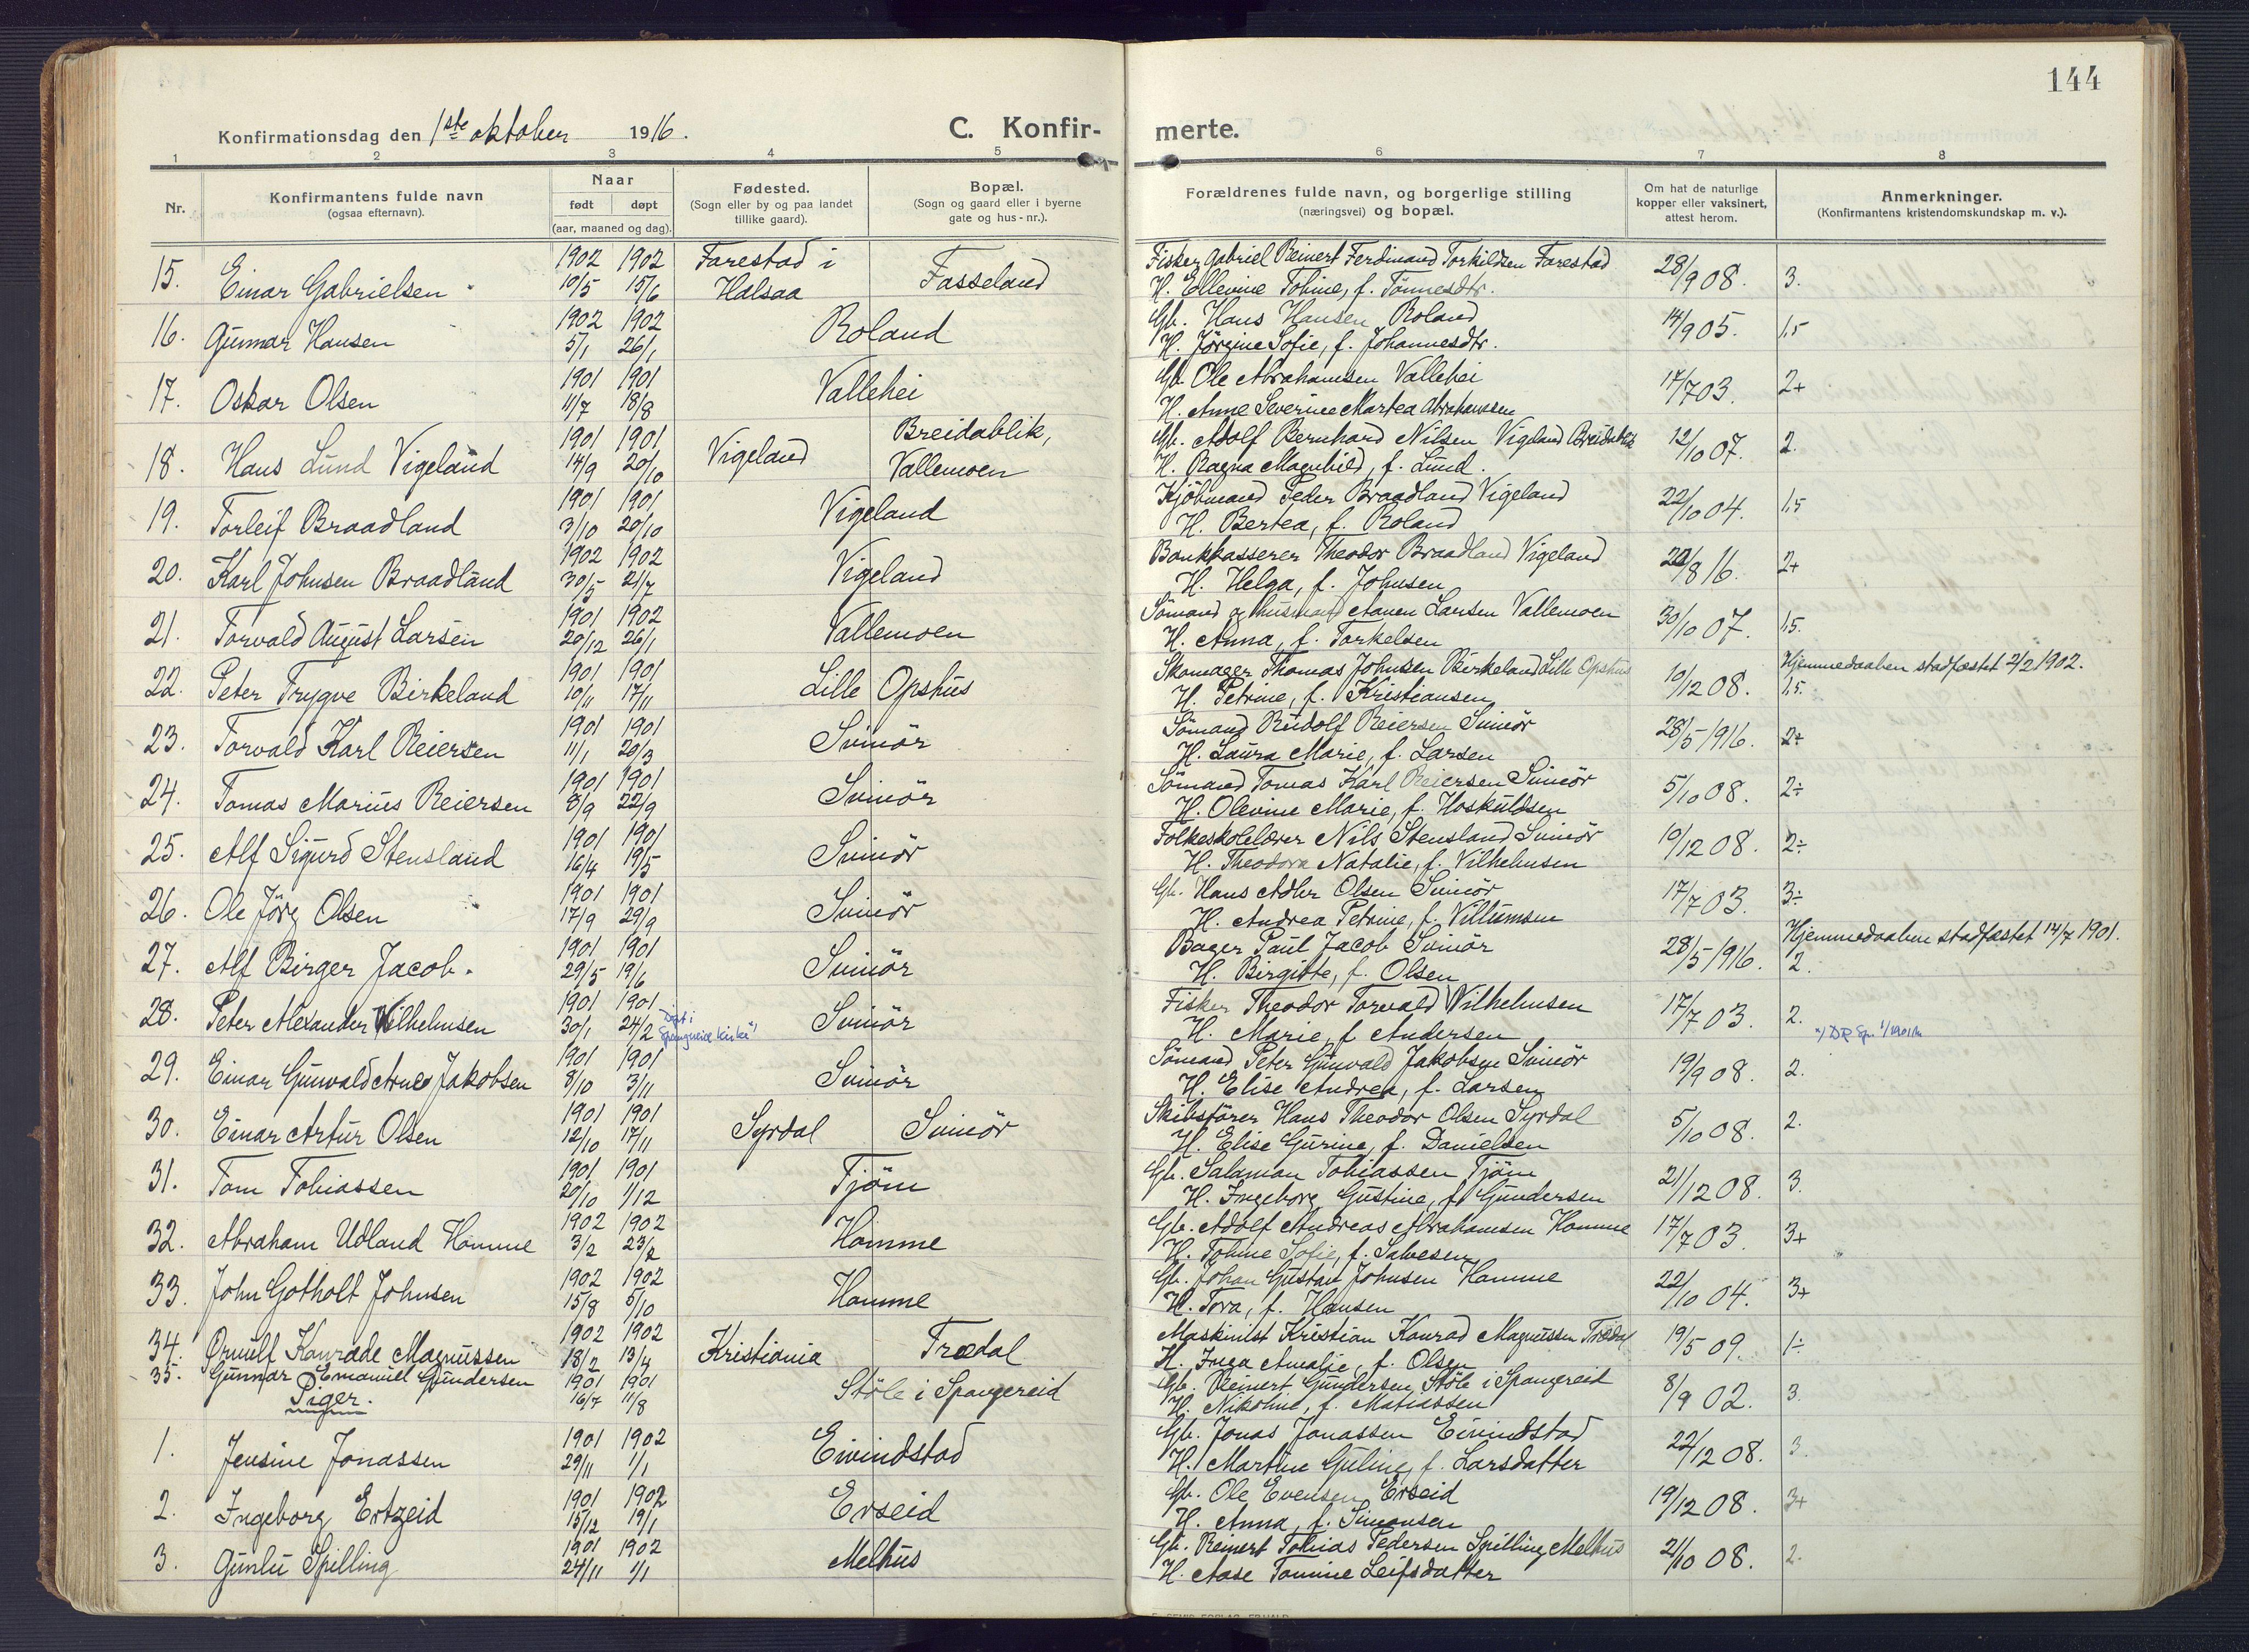 144
Konfirmationsdag den 1ste oktober 1916.
C. Konfirmerte.
1 2 3 4 5 6 7 8
Nr.
Konfirmantens fulde navn
(ogsaa efternavn).
Naar
født døpt
(aar, maaned og dag).
Fødested.
(Sogn eller by og paa landet
tillike gaard).
Bopæl.
(Sogn og gaard eller i byerne
gate og hus-nr.).
Forældrenes fulde navn, og borgerlige stilling
(næringsvei) og bopæl.
Om hat de naturlige
kopper eller vaksinert,
attest herom.
Anmerkninger.
(Konfirmantens kristendomskundskap m. v.).
15. Einar Gabrielsen 1902 10/5 1902 15/6 Farestad i Halsaa Fasseland
Fisker Gabriel Reinert Ferdinand Torkildsen Farestad
H. Ellevine Tobine, f. Tønnesdtr. 28/9 08. 3.
16. Gunnar Hansen 1902 5/1 1902 26/1 Roland
Gb. Hans Hansen Roland
H. Jörgine Sofie, f. Johannesdtr. 14/9 05. 1,5
17. Oskar Olsen 1901 11/7 1901 18/8 Vallehei
Gb. Ole Abrahamsen Vallehei
H. Anne Severine Martea Abrahamsen 17/7 03. 2+
18. Hans Lund Vigeland 1901 14/9 1901 20/10 Vigeland Breidablik, Vallemoen
Gb. Adolf Bernhard Nilsen Vigeland Breidablik
H. Ragna Magnhild, f. Lund. 12/10 07. 2.
19. Torleif Braadland 1901 3/10 1901 20/10 Vigeland
Kjöbmand Peder Braadland Vigeland
H. Bertea, f. Roland 22/10 04. 1,5
20. Karl Johnsen Braadland 1902 30/5 1902 21/7 Vigeland
Bankkasserer Theodor Braadland Vigeland
H. Helga, f. Johnsen 20/8 16. 2+
21. Torvald August Larsen 1901 20/12 1902 26/1 Vallemoen
Sömand og husmand Aanen Larsen Vallemoen
H. Anna, f. Torkelsen 30/10 07. 1,5.
22. Peter Trygve Birkeland 1901 10/11 1901 17/11 Lille Opshus
Skomager Thomas Johnsen Birkeland Lille Opshus
H. Petrine, f. Kristiansen 10/12 08. Hjemmedaaben stadfæstet 2/2 1902.
1,5.
23. Torvald Karl Reiersen 1901 11/1 1901 20/3 Svinör
Sömand Rudolf Reiersen Svinör
H. Laura Marie, f. Larsen 28/5 1916. 2+
24. Tomas Marius Reiersen 1901 8/9 1901 22/9 Svinör
Sömand Tomas Karl Reiersen Svinör
H. Olevine Marie, f. Hoskuldsen 5/10 08. 2÷
25. Alf Sigurd Stensland 1901 16/4 1901 19/5 Svinör
Folkeskolelærer Nils Stensland Svinör
H. Theodora Natalie, f. Vilhelmsen 10/12 08. 2÷
26. Ole Jörg Olsen 1901 17/9 1901 29/9 Svinör
Gb. Hans Adler Olsen Svinör
H. Andrea Petrine, f. Villumsen 17/7 03. 3÷
27. Alf Birger Jacob. 1901 29/5 1901 19/6 Svinör
Bager Paul Jacob Svinör
H. Birgitte, f. Olsen 28/5 1916. Hjemmedaaben stadfæstet 14/7 1901.
2.
28. Peter Alexander Wilhelmsen 1901 30/1 1901 24/2 Døpt i Spangereid kirke Svinör
Fisker Theodor Torvald Vilhelmsen
H. Marie, f. Andersen 17/7 03. 2.
29. Einar Gunvald Arne Jakobsen 1901 8/10 1901 3/11 Svinör
Sömand Peter Gunvald Jakobsen Svinör
H. Elise Andrea, f. Larsen 19/9 08. 2.
30. Einar Artur Olsen 1901 12/10 1901 17/11 Syrdal Svinör
Skibsförer Hans Theodor Olsen Syrdal
H. Elise Gurine, f. Danielsen 5/10 08. 2.
31. Tom Tobiassen 1901 20/10 1901 1/12 Tjöm
Gb. Salamon Tobiassen Tjöm
H. Ingeborg Gustine, f. Gundersen 21/12 08. 3.
32. Abraham Udland Homme 1902 3/2 1902 23/2 Homme
Gb. Adolf Andreas Abrahamsen Homme
H. Tobine Sofie, f. Salvesen 17/7 03. 3+
33. John Gotholt Johnsen 1902 15/8 1902 5/10 Homme
Gb. Johan Gustav Johnsen Homme
H. Tora, f. Hansen 22/10 04. 3+
34. Ørnulf Konrade Magnussen 1902 18/2 1902 13/4 Kristiania Trædal
Maskinist Kristian Konrad Magnussen Trædal
H. Inga Amalie, f. Olsen 19/5 09. 1÷
35. Gunnar Emanuel Gundersen 1901 16/7 1901 11/8 Stöle i Spangereid
Gb. Reinert Gundersen Stöle i Spangereid
H. Nikoline, f. Matiassen 8/9 02. 3.
Piger.
1. Jensine Jonassen 1901 29/11 1902 1/1 Eivindstad
Gb. Jonas Jonassen Eivindstad
H. Martine Guline, f. Larsdatter 22/12 08. 3.
2. Ingeborg Ertzeid 1901 15/12 1902 19/1 Erseid
Gb. Ole Evensen Erseid
H. Anna, f. Simonsen 19/12 08. 3+
3. Gunlu Spilling 1901 24/11 1902 1/1 Melhus
Gb. Reinert Tobias Pedersen Spilling Melhus
H. Aase Tomine Leifsdatter 21/10 08. 2.